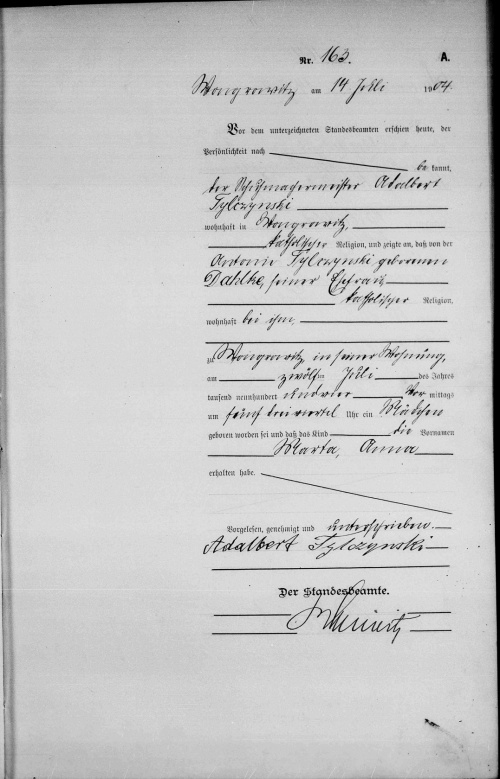 Nr. 163. A.
Wongrowitz am 14 Juli 1904.
Vor dem unterzeichneten Standesbeamten erschien heute, der
Persönlichkeit nach
be kannt,
der Schuhmachermeister Adalbert
Tylczynski
wohnhaft in Wongrowitz,
katholischer Religion, und zeigte an, daß von der
Antonie Tylczynski geborenen
Dahlke, seiner Ehefrau
katholischer Religion,
wohnhaft bei ihm,
zu Wongrowitz, in seiner Wohnung,
am zwölften Juli des Jahres
tausend neunhundert und vier Vor mittags
um fünf dreiviertel Uhr ein Mädchen
geboren worden sei und daß das Kind die Vornamen
Marta, Anna
erhalten habe.
Vorgelesen, genehmigt und unterschrieben.
Adalbert Tylczynski
Der Standesbeamte.